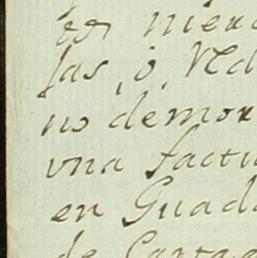 las, o, Vd
no demor
vna factu
en Guada
de Carta